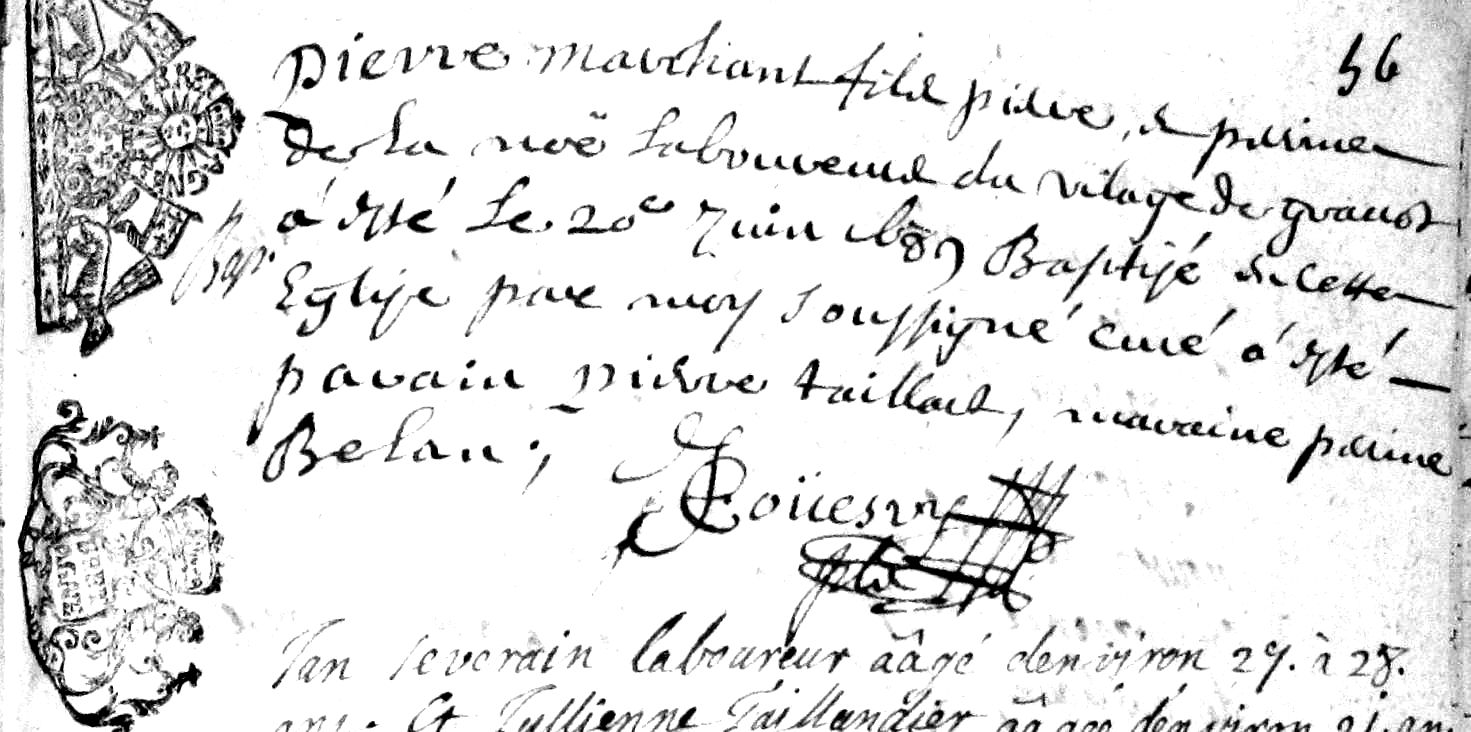 56
pierre marchant fils pierre, & perrine
de la noë laboureurs du vilage de
á esté Le 20e Juin Baptisé en cette
Eglise par moy soussigné curé á esté
parain pierre taillart, maraine perine
Belan;
Bap.
Jan severain laboureur aâgé denviron 27. à 28.
ans. Et Jullienne Taillandier aâgée dénviron 21. an.